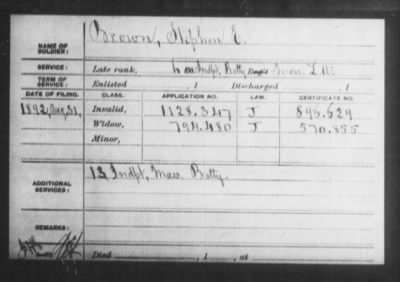 NAME OF SOLDIER: Brown, Stephen E.
SERVICE: Late rank, 6 Indpt, Batty Mass. L. A.
TERM OF SERVICE: Enlisted , 1 Discharged , 1
DATE OF FILING. CLASS. APPLICATION NO. LAW. CERTIFICATE NO.
1892, Aug. 31, Invalid, 1128.347 J 895.629
Widow, 794.480 J 570.855
Minor,
ADDITIONAL SERVICES: 13 Indpt, Mass. Batty.
REMARKS:
Died , 1 , at